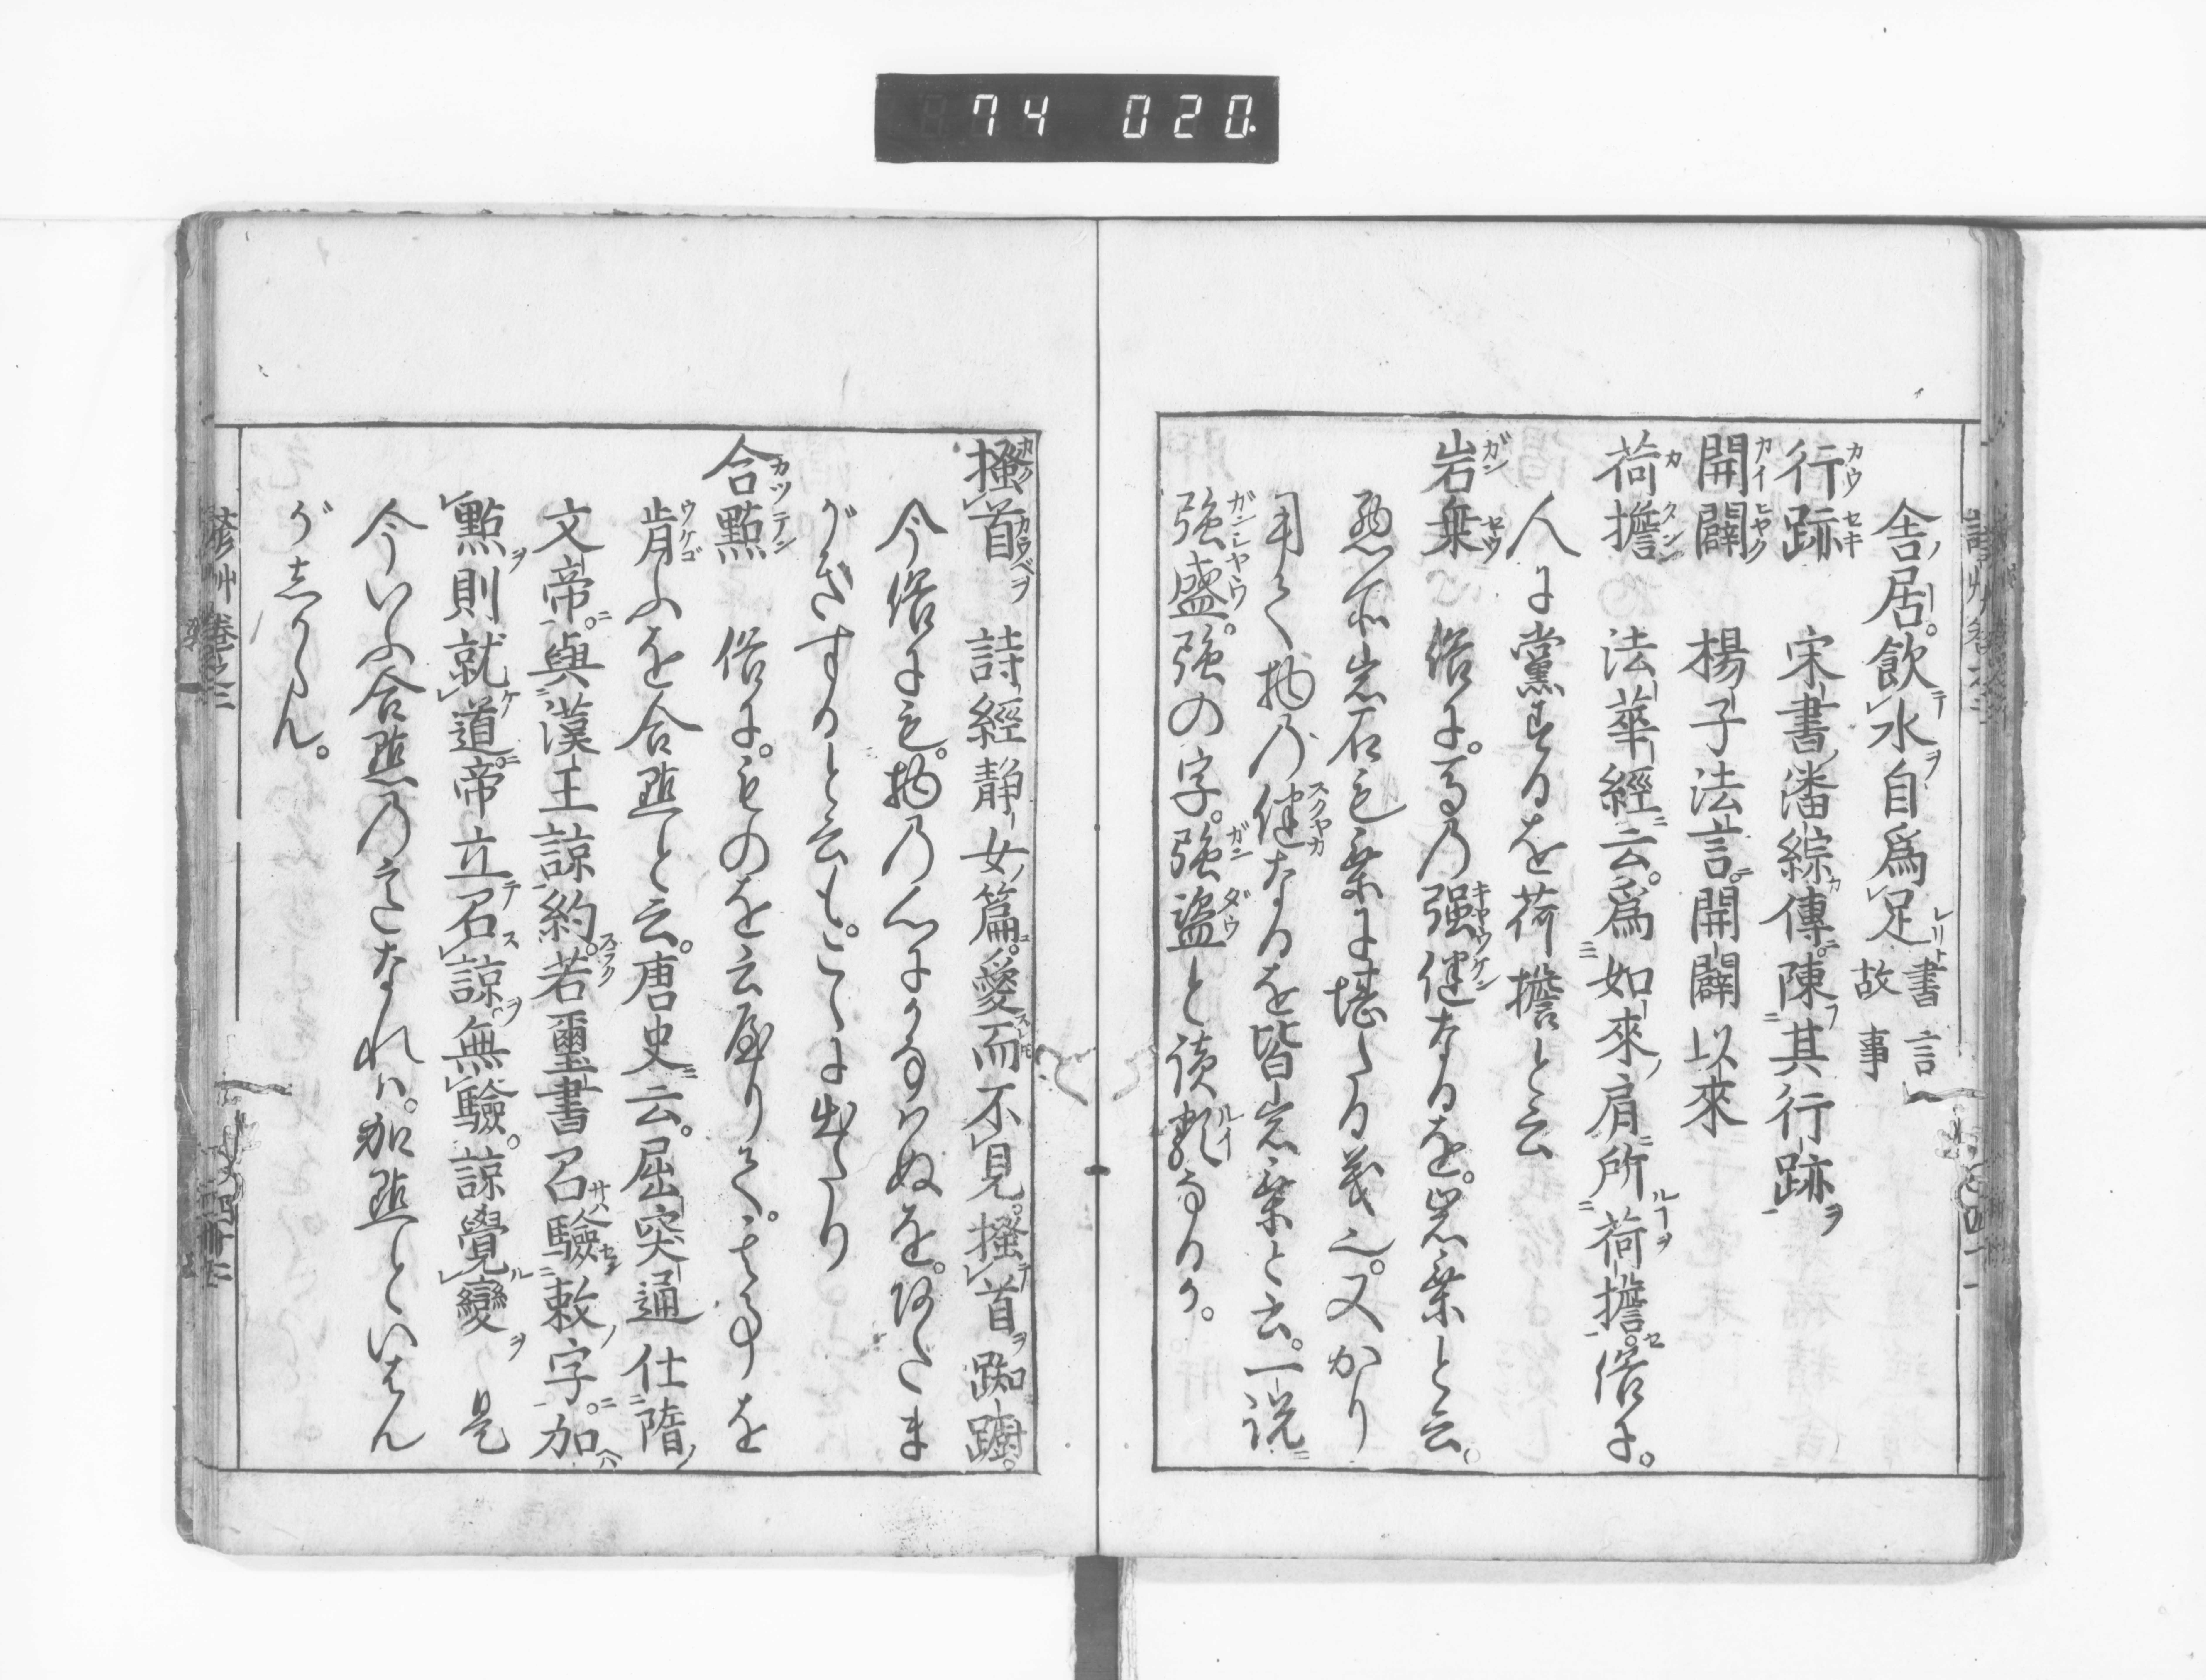 74 020.
舎居。飲水自爲足 書言故事
行跡 宋書潘綜傳。陳其行跡
開闢 楊子法言。開闢以來
荷擔 法華經云。爲如來肩所荷擔。俗に。
人に黨するを荷擔と云
岩乗 俗に。馬の强健なるを。岩乗と云。
悪所岩石も乗に堪たる義也。又かり
用て物の健なるを皆岩乗と云。一説
强盛。强の字。强盗と読類なるか。
搔首 詩經静女篇。愛而不見。搔首踟躕。
今俗にも。物の心にかなはぬを。あたま
がきすると云も。こゝに出たり
合點 俗に。ものを云やりて。其事を
肯ふを合點と云。唐史云。屈突通仕隋
文帝。與漢王諒約。若璽書召驗敕字。加
點則就道。帝立召諒。無驗。諒覺變 是
今いふ合點のことなれは。加點といはん
がよからん。